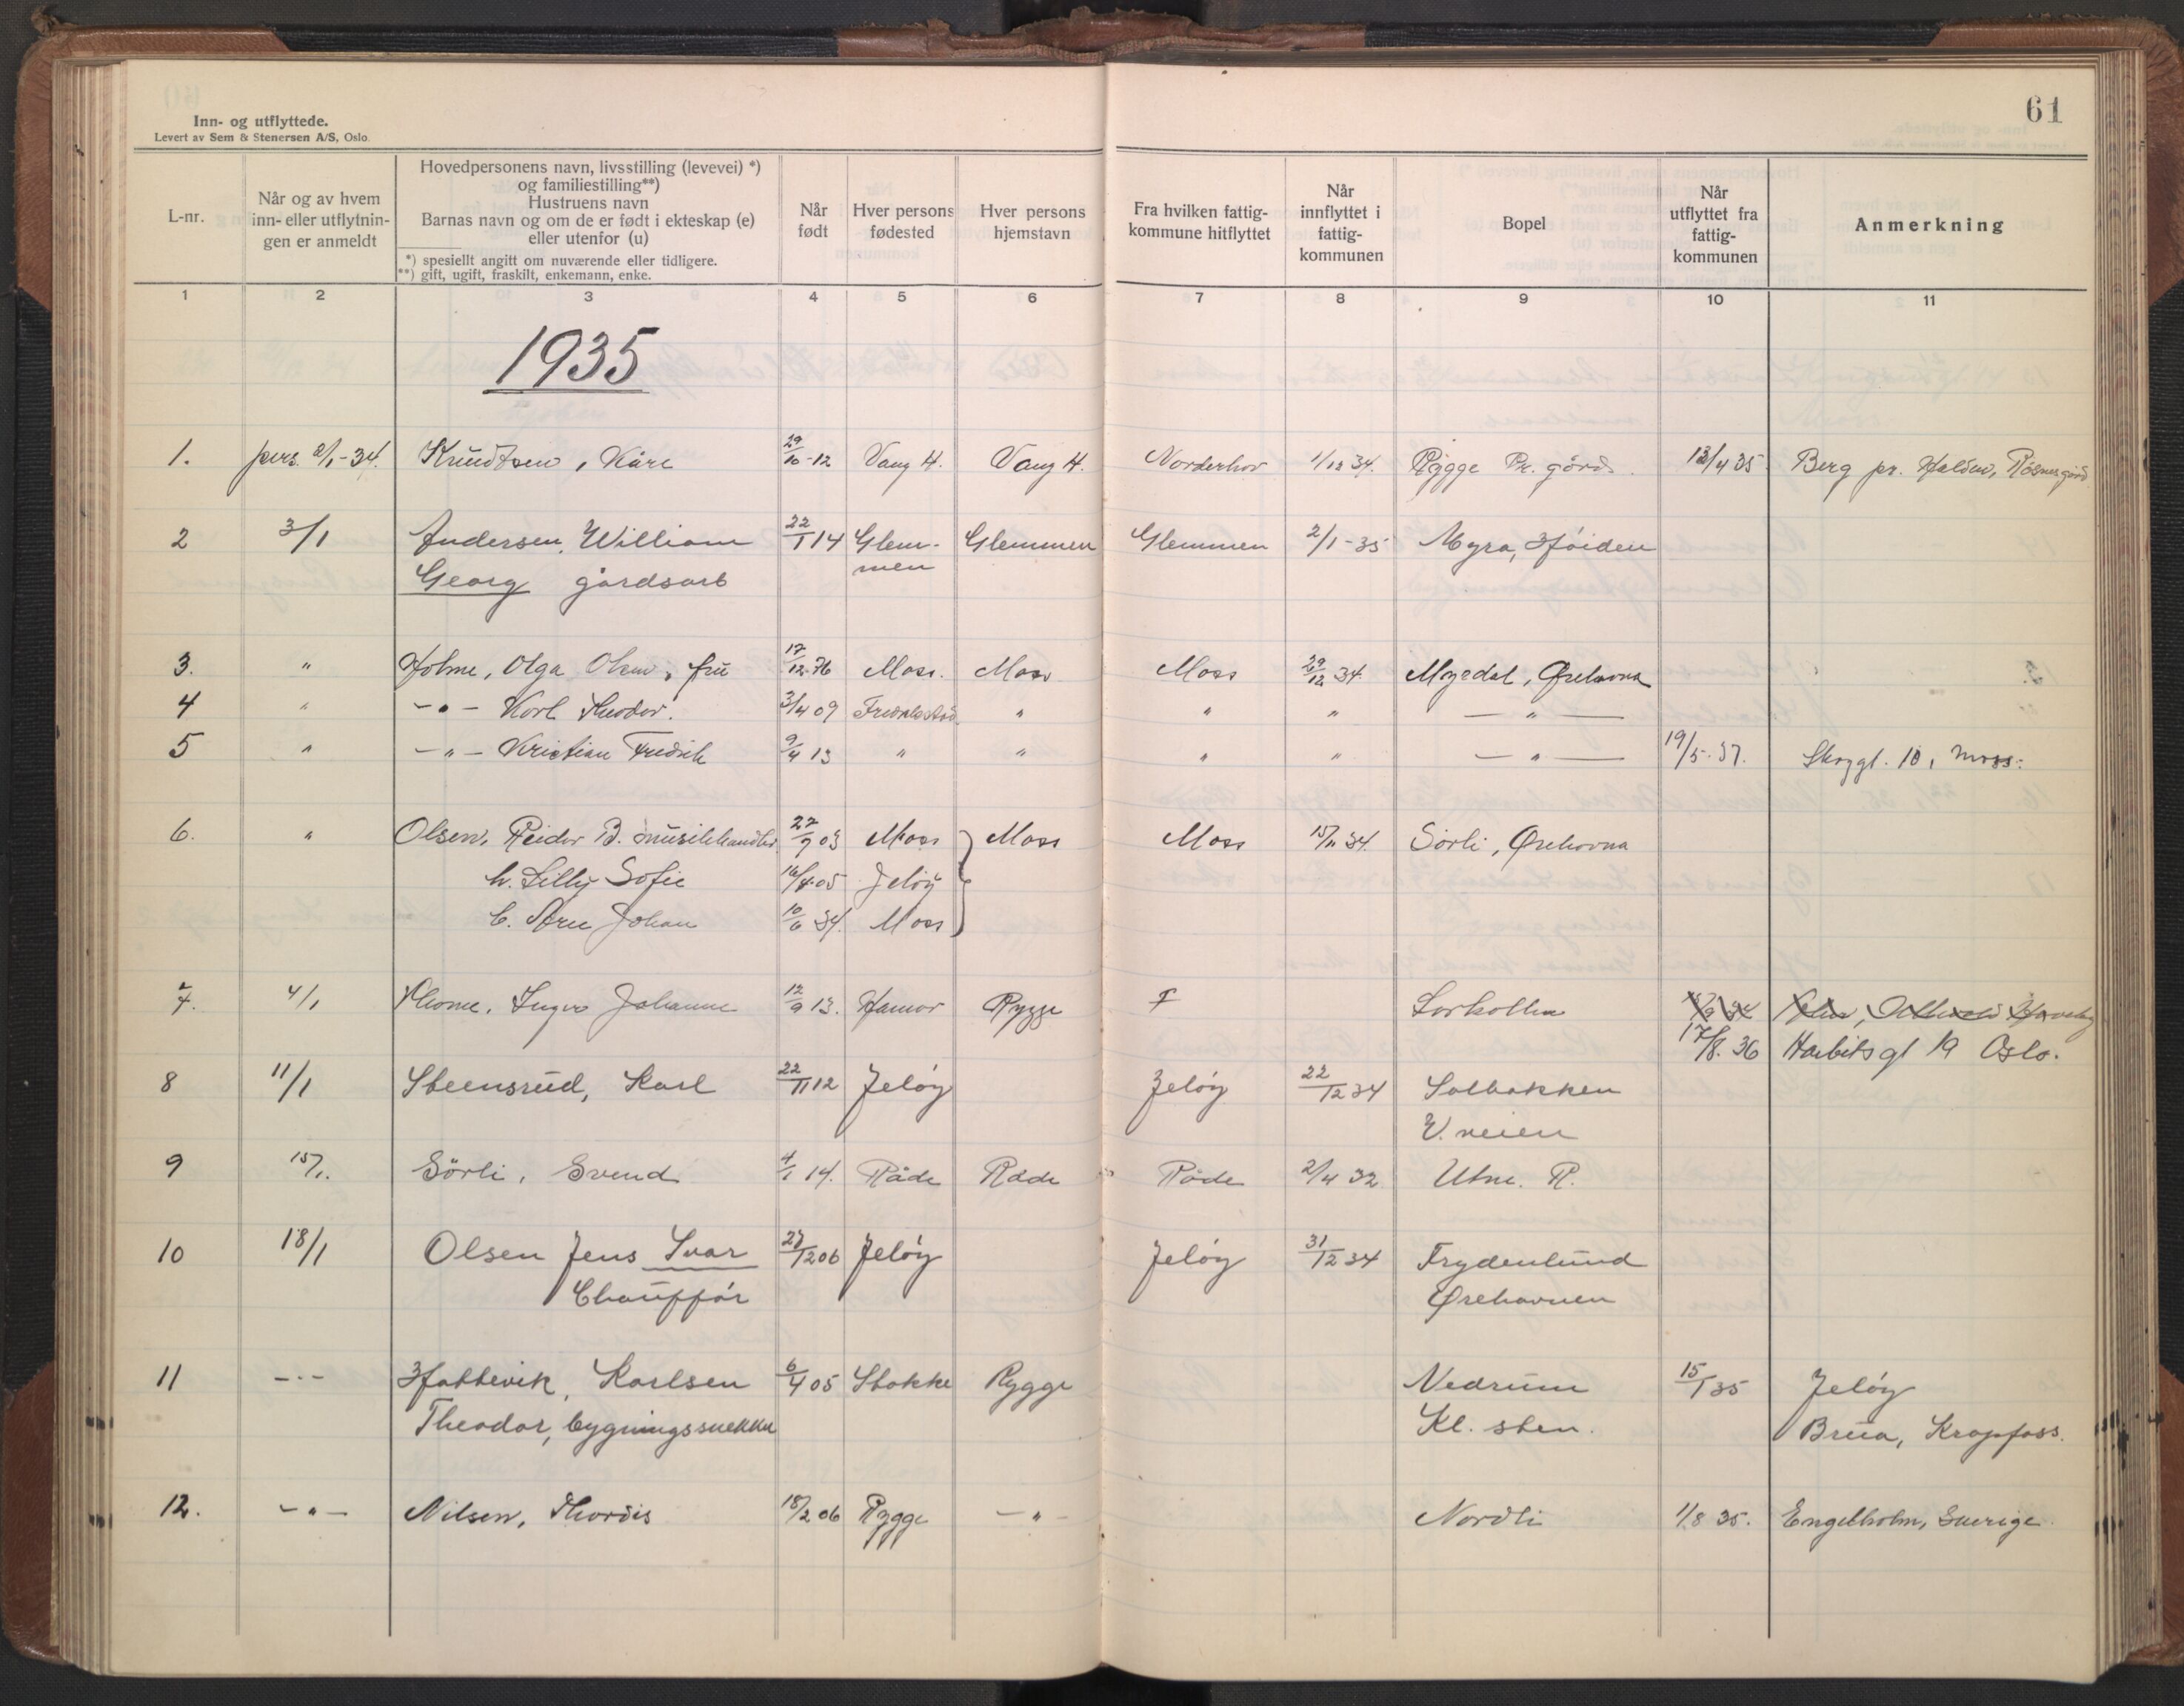 61
Inn- og utflyttede.
Levert av Sem & Stenersen A/S, Oslo.
L-nr.
Når og av hvem
inn- eller utflytnin-
gen er anmeldt
Hovedpersonens navn, livsstilling (levevei) *)
og familiestilling**)
Hustruens navn
Barnas navn og om de er født i ekteskap (e)
eller utenfor (u)
*) spesiellt angitt om nuværende eller tidligere.
**) gift, ugift, fraskilt, enkemann, enke.
Når
født
Hver persons
fødested
Hver persons
hjemstavn
Fra hvilken fattig-
kommune hitflyttet
Når
innflyttet i
fattig-
kommunen
Bopel
Når
utflyttet fra
fattig-
kommunen
Anmerkning
1 2 3 4 5 6 7 8 9 10 11
1935
1. pers. 2/1-34. Knudtsen, Kåre 29/10-12 Vang H. Vang H. Norderhov 1/12 34. Rygge Pr. gård. 13/4 35 Berg pr. Halden,
2 3/1 Andersen, William 22/1 14 Glem- Glemmen Glemmen 2/1-35 Myra, Høiden
Georg gårdsarb men
3. " Holme, Olga Olsen, fru 17/12-76 Moss. Moss Moss 29/12 34. Myrdal, Ørehavna
4 " -"- Karl Theodor. 3/4 09 Fredrikstad " " " -"-
5 " -"- Kristian Fredrik 9/4 13 " " " " -"- 19/5-37. Skoggt. 10, Moss.
6. " Olsen, Reidar B. musikkhandler 27/9 03 Moss Moss Moss 15/11 34. Sörli, Ørehavna
h. Lilly Sofie 16/4-05 Jeløy
b. Arne Johan 10/6 34. Moss
7. 4/1 Inger Johanne 12/9 13. Hamar Rygge F Larkollen
17/8. 36 Harbitsgt 19 Oslo.
8 11/1 Steensrud, Karl 22/11 12 Jeløy Jeløy 22/12 34 Solbakken
V. veien
9 15/1. Sörli, Svend 4/1 14. Råde Råde Råde 2/4 32 Utne. R.
10 18/1 Olsen Jens Ivar 27/12 06 Jeløy Jeløy 31/12 34 Frydenlund
Chaufför Ørehavnen
11 -"- Karlsen 6/4 05 Stokke Rygge Nedrum 15/1 35 Jeløy
Theodor, bygningssnekker Kl. sten. Brua, Krapfoss.
12. -"- Nilsen, Thordis 18/2 06 Rygge -"- Nordli 1/8 35. Engelholm, Sverige.